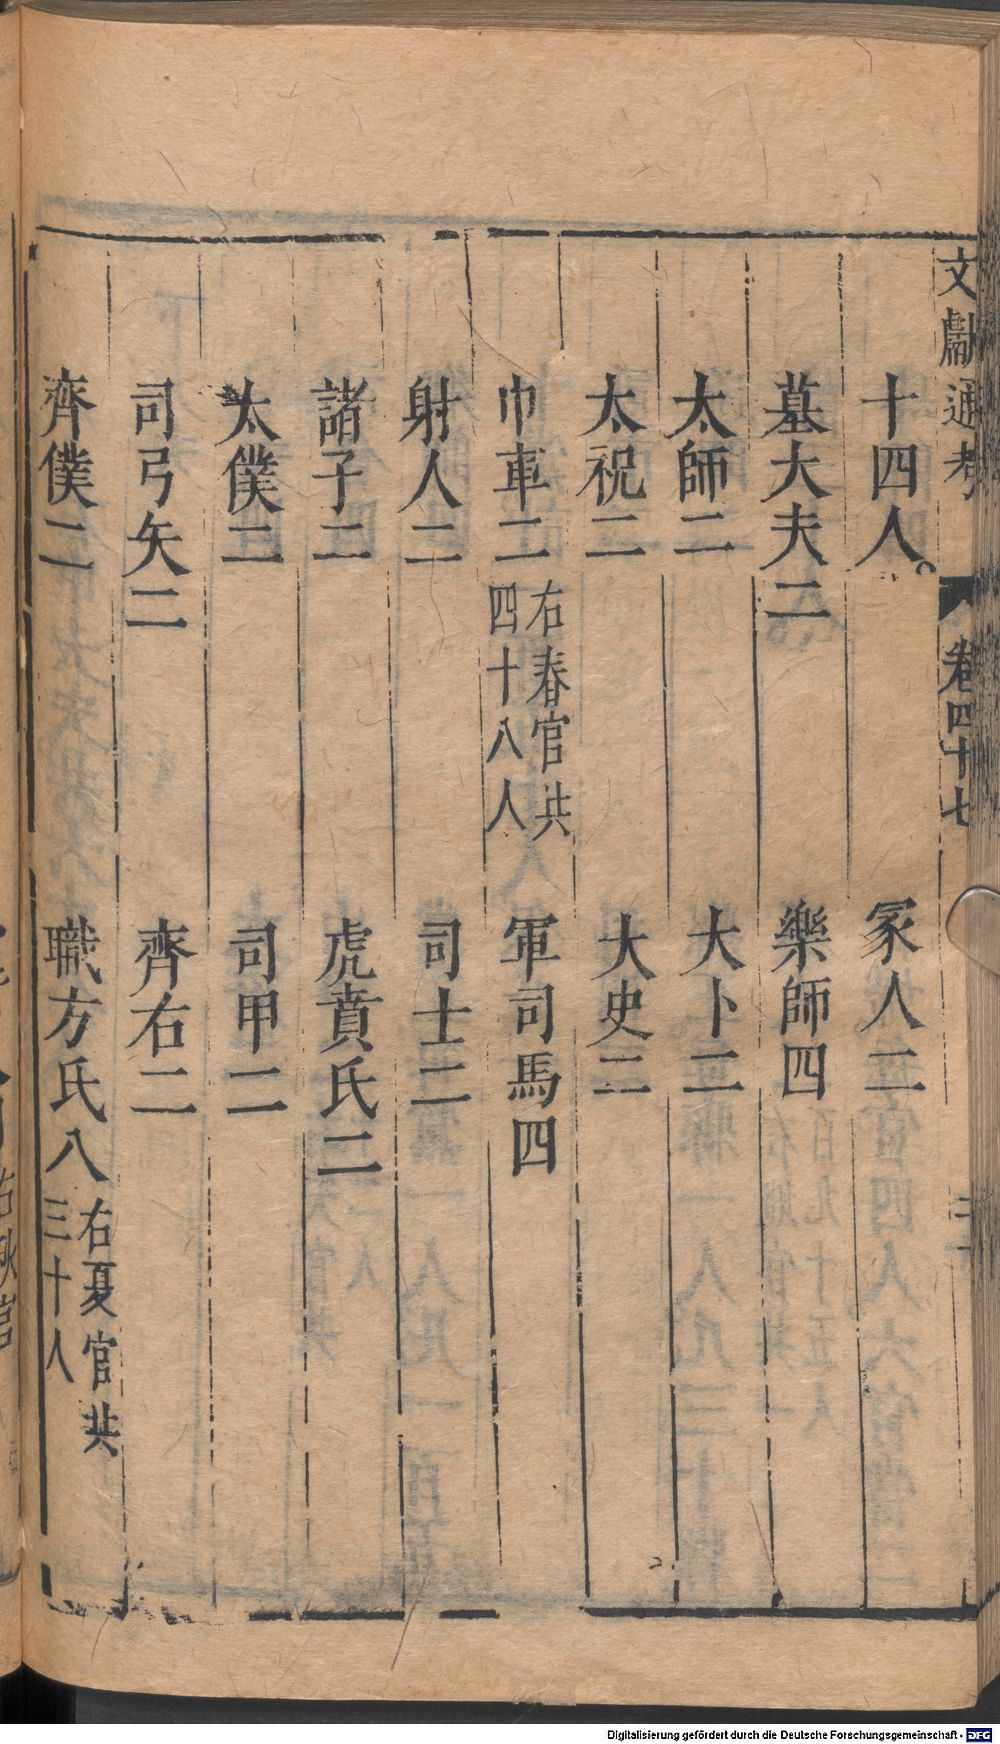 文獻通考 卷四十七
十四人。 冢人二
墓大夫二 樂師四
太師二 大卜二
太祝二 大史二
巾車二 右春官共四十八人 軍司馬四
射人二 司士二
諸子二 虎賁氏二
太僕二 司甲二
司弓矢二 齊右二
齊僕二 職方氏八 右夏官共三十人
Digitalisierung gefördert durch die Deutsche Forschungsgemeinschaft - DFG